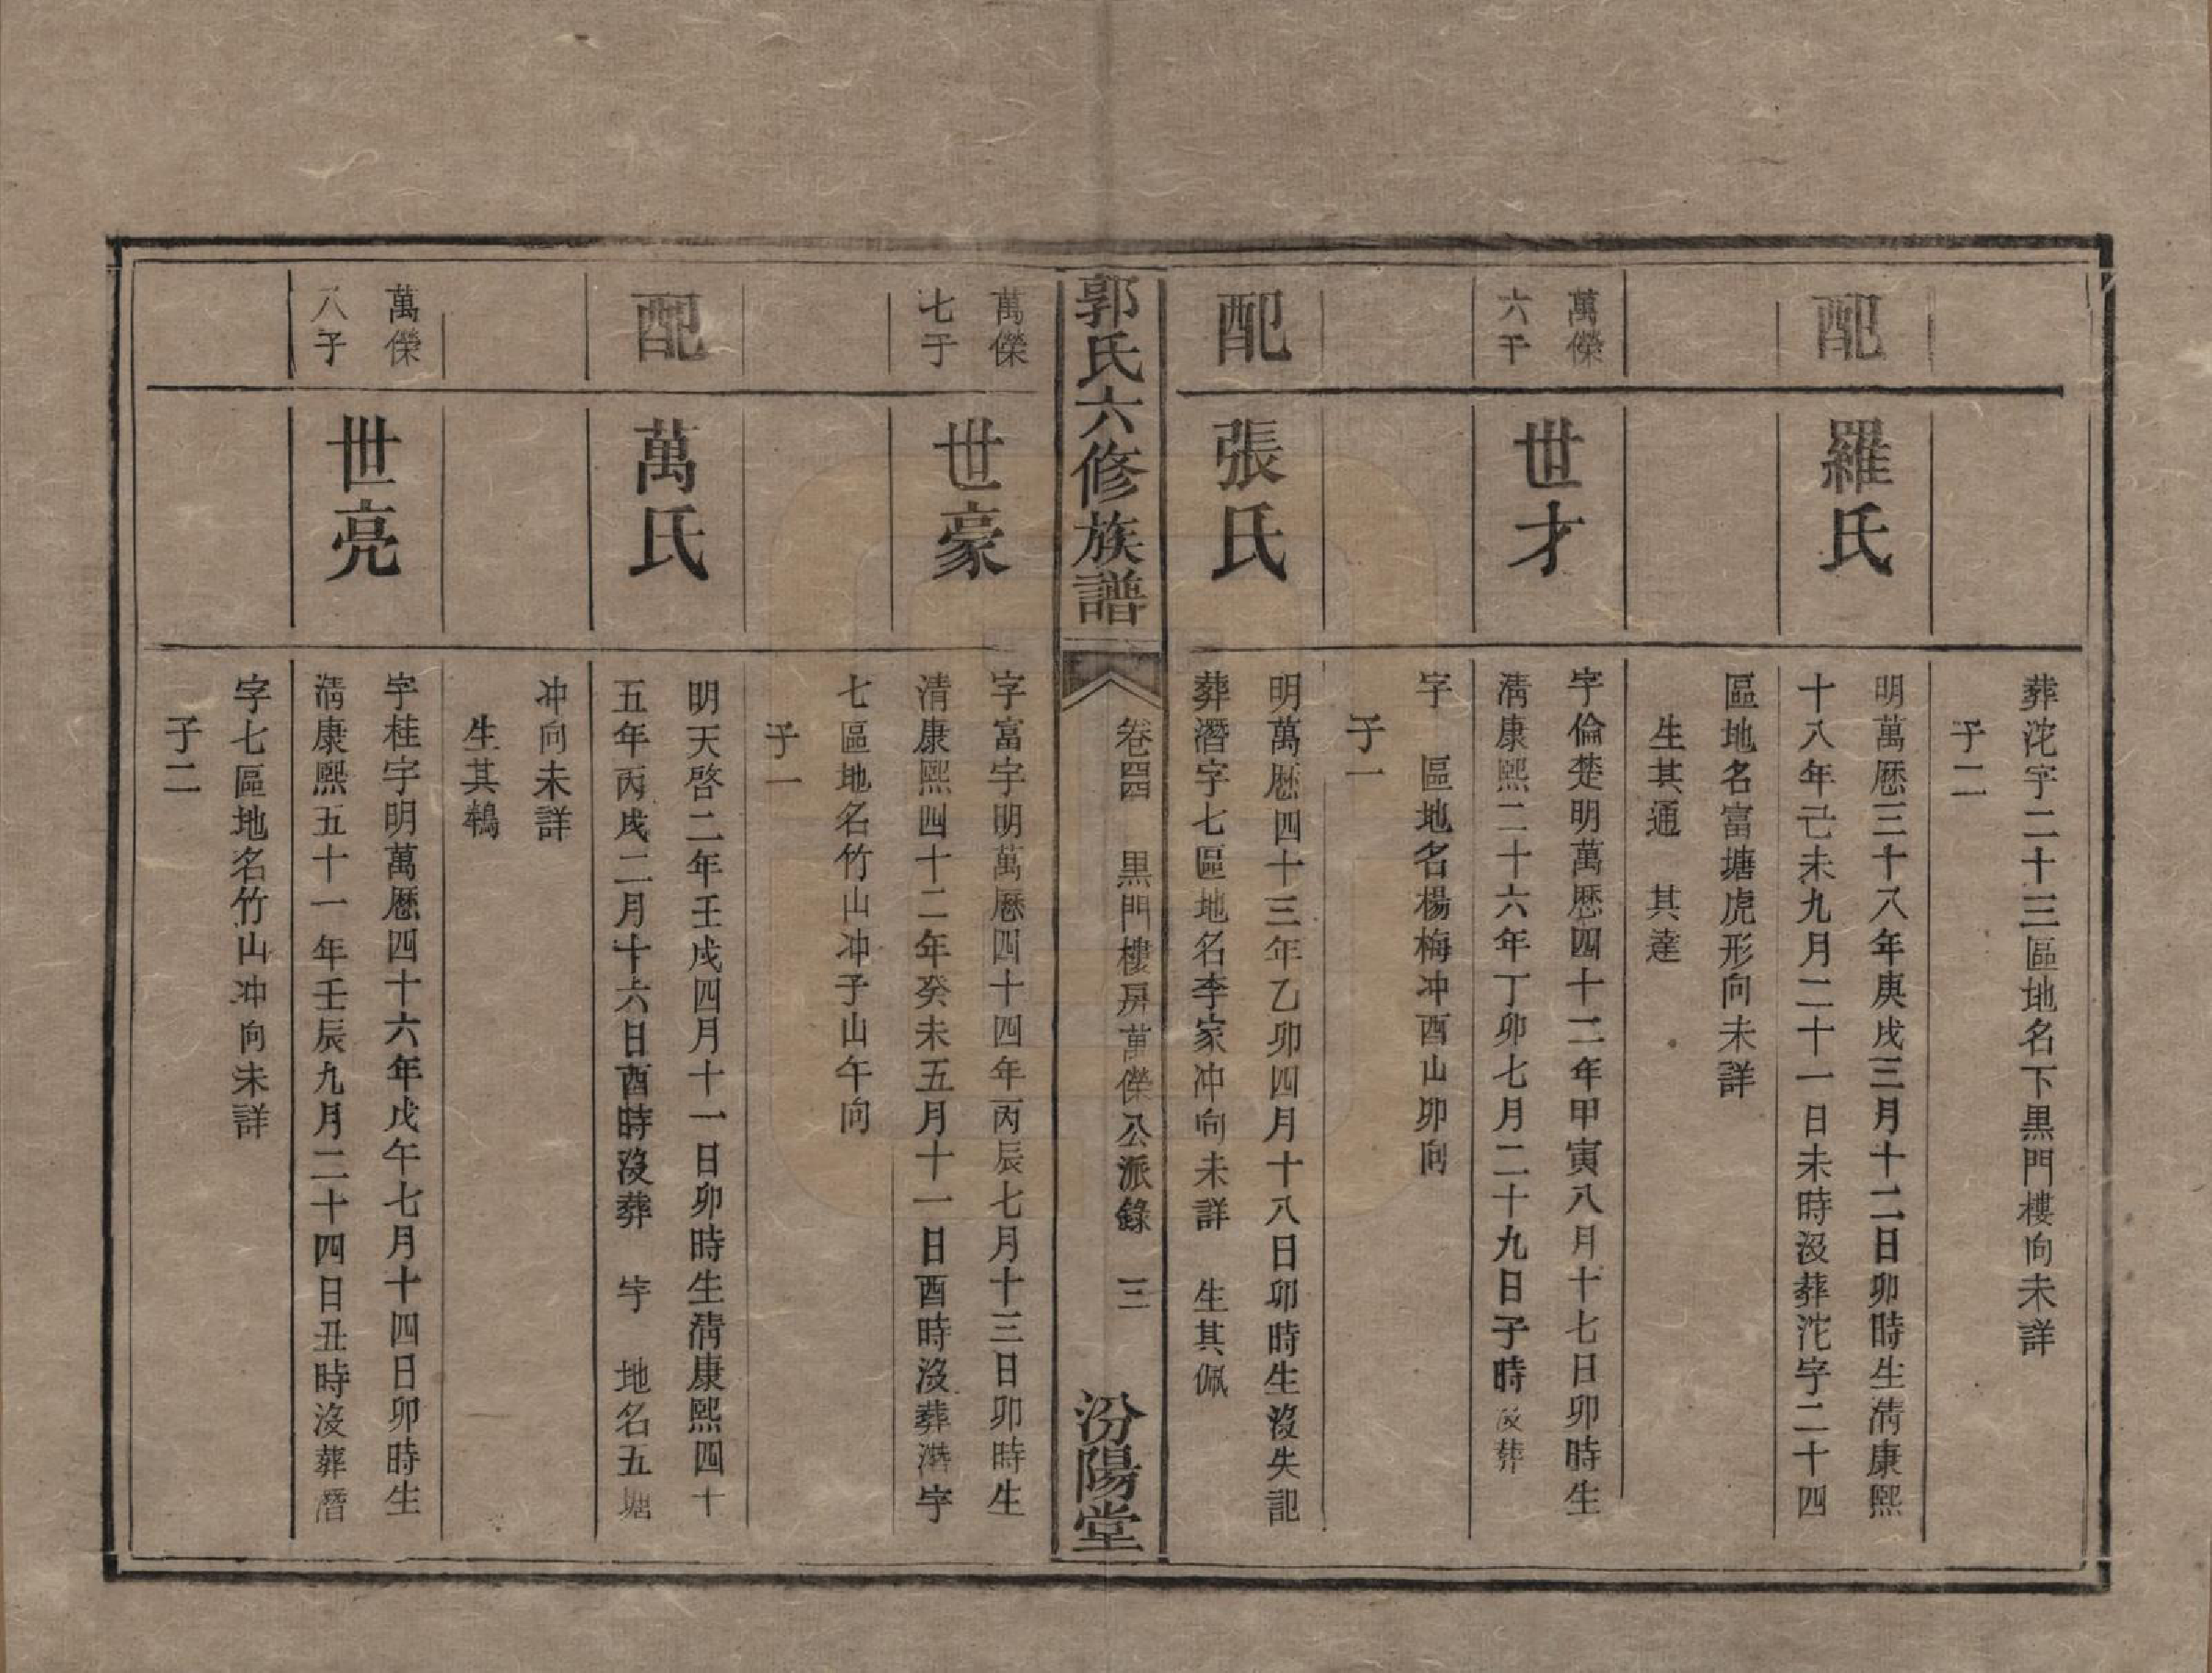 葬沱字二十三區地名下黒門樓向未詳
子二
配
羅氏
明萬厯三十八年庚戌三月十二日卯時生清康熙
十八年己未九月二十一日未時沒葬沱字二十四
區地名富塘虎形向未詳
生其通　其達
萬傑
六子
世才
字倫楚明萬厯四十二年甲寅八月十七日卯時生
清康熙二十六年丁卯七月二十九日子時沒葬
字　區地名楊梅冲酉山卯向
子一
配
張氏
明萬厯四十三年乙卯四月十八日卯時生沒失記
葬潛字七區地名李家冲向未詳　生其佩
郭氏六修族譜
卷四　黒門樓房萬傑公派錄　三
汾陽堂
萬傑
七子
世豪
字富宇明萬厯四十四年丙辰七月十三日卯時生
清康熙四十二年癸未五月十一日酉時沒葬潛字
七區地名竹山冲子山午向
子一
配
萬氏
明天啓二年壬戌四月十一日卯時生清康熙四十
五年丙戌二月十六日酉時沒葬　字　地名五塘
冲向未詳
生其鶤
萬傑
八子
世亮
字桂宇明萬厯四十六年戊午七月十四日卯時生
清康熙五十一年壬辰九月二十四日丑時沒葬潛
字七區地名竹山冲向未詳
子二